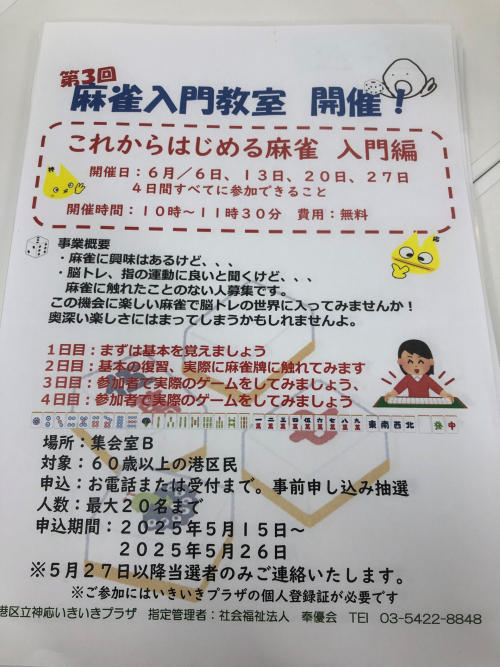 第3回
麻雀入門教室 開催！
これからはじめる麻雀 入門編
開催日：６月／６日、１３日、２０日、２７日
４日間すべてに参加できること
開催時間：１０時～１１時３０分 費用：無料
事業概要
・麻雀に興味はあるけど、、、
・脳トレ、指の運動に良いと聞くけど、、、
麻雀に触れたことのない人募集です。
この機会に楽しい麻雀で脳トレの世界に入ってみませんか！
奥深い楽しさにはまってしまうかもしれませんよ。
１日目：まずは基本を覚えましょう
２日目：基本の復習、実際に麻雀牌に触れてみます
３日目：参加者で実際のゲームをしてみましょう、
４日目：参加者で実際のゲームをしてみましょう
一萬 二萬 三萬 四萬 五萬 六萬 七萬 八萬 九萬 東 南 西 北 發 中
場所：集会室Ｂ
対象：６０歳以上の港区民
申込：お電話または受付まで。事前申し込み抽選
人数：最大２０名まで
申込期間：２０２５年５月１５日～
２０２５年５月２６日
※５月２７日以降当選者のみご連絡いたします。
※ご参加にはいきいきプラザの個人登録証が必要です
港区立神応いきいきプラザ 指定管理者：社会福祉法人 奉優会 TEl 03-5422-8848